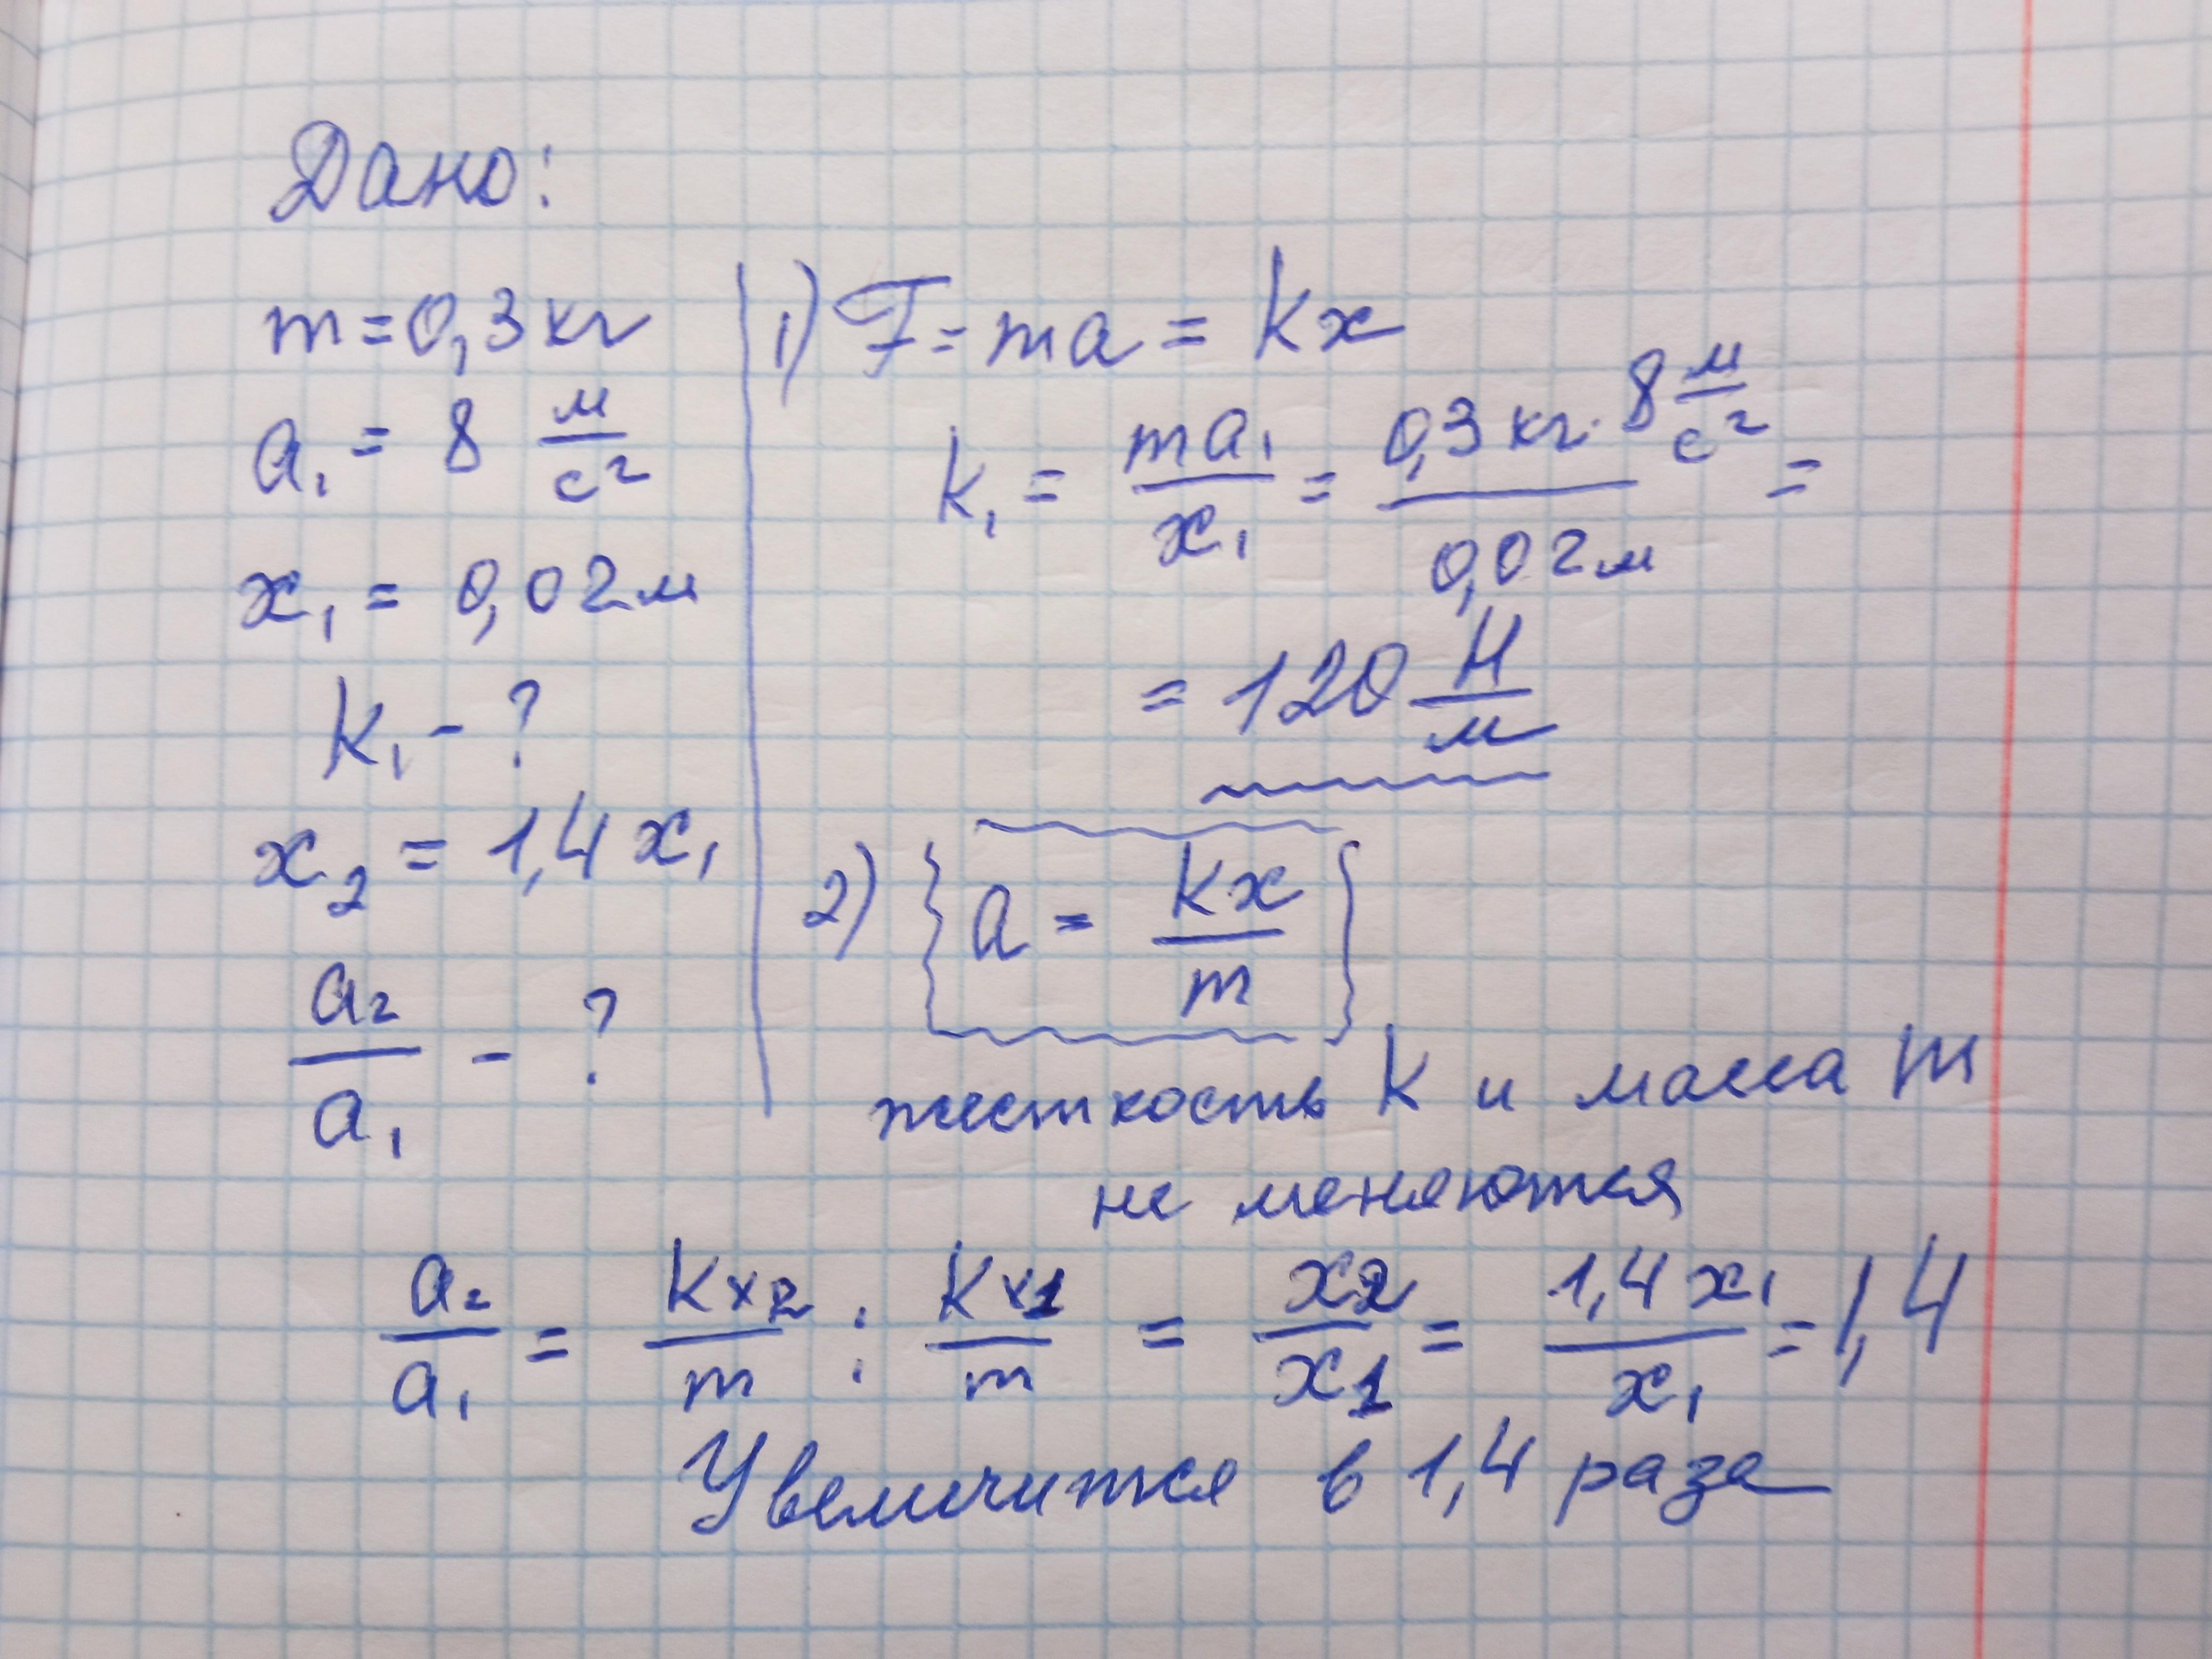 Дано:
m = 0,3 кг
a₁ = 8 м/с²
x₁ = 0,02 м
k₁ - ?
x₂ = 1,4 x₁
a₂/a₁ - ?
1) F = ma = kx
k₁ = ma₁/x₁ = 0,3 кг · 8 м/с² / 0,02 м =
= 120 Н/м
2) a = kx/m
жесткость k и масса m
не меняются
a₂/a₁ = kx₂/m : kx₁/m = x₂/x₁ = 1,4 x₁/x₁ = 1,4
Увеличится в 1,4 раза